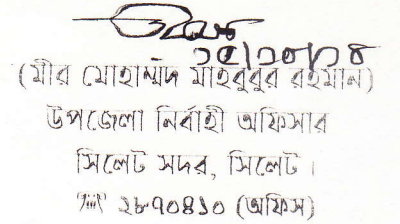 ১৫/১০/১৪
(মীর মোহাম্মদ মাহবুবুর রহমান)
উপজেলা নির্বাহী অফিসার
সিলেট সদর, সিলেট।
২৮৭০৪১০ (অফিস)